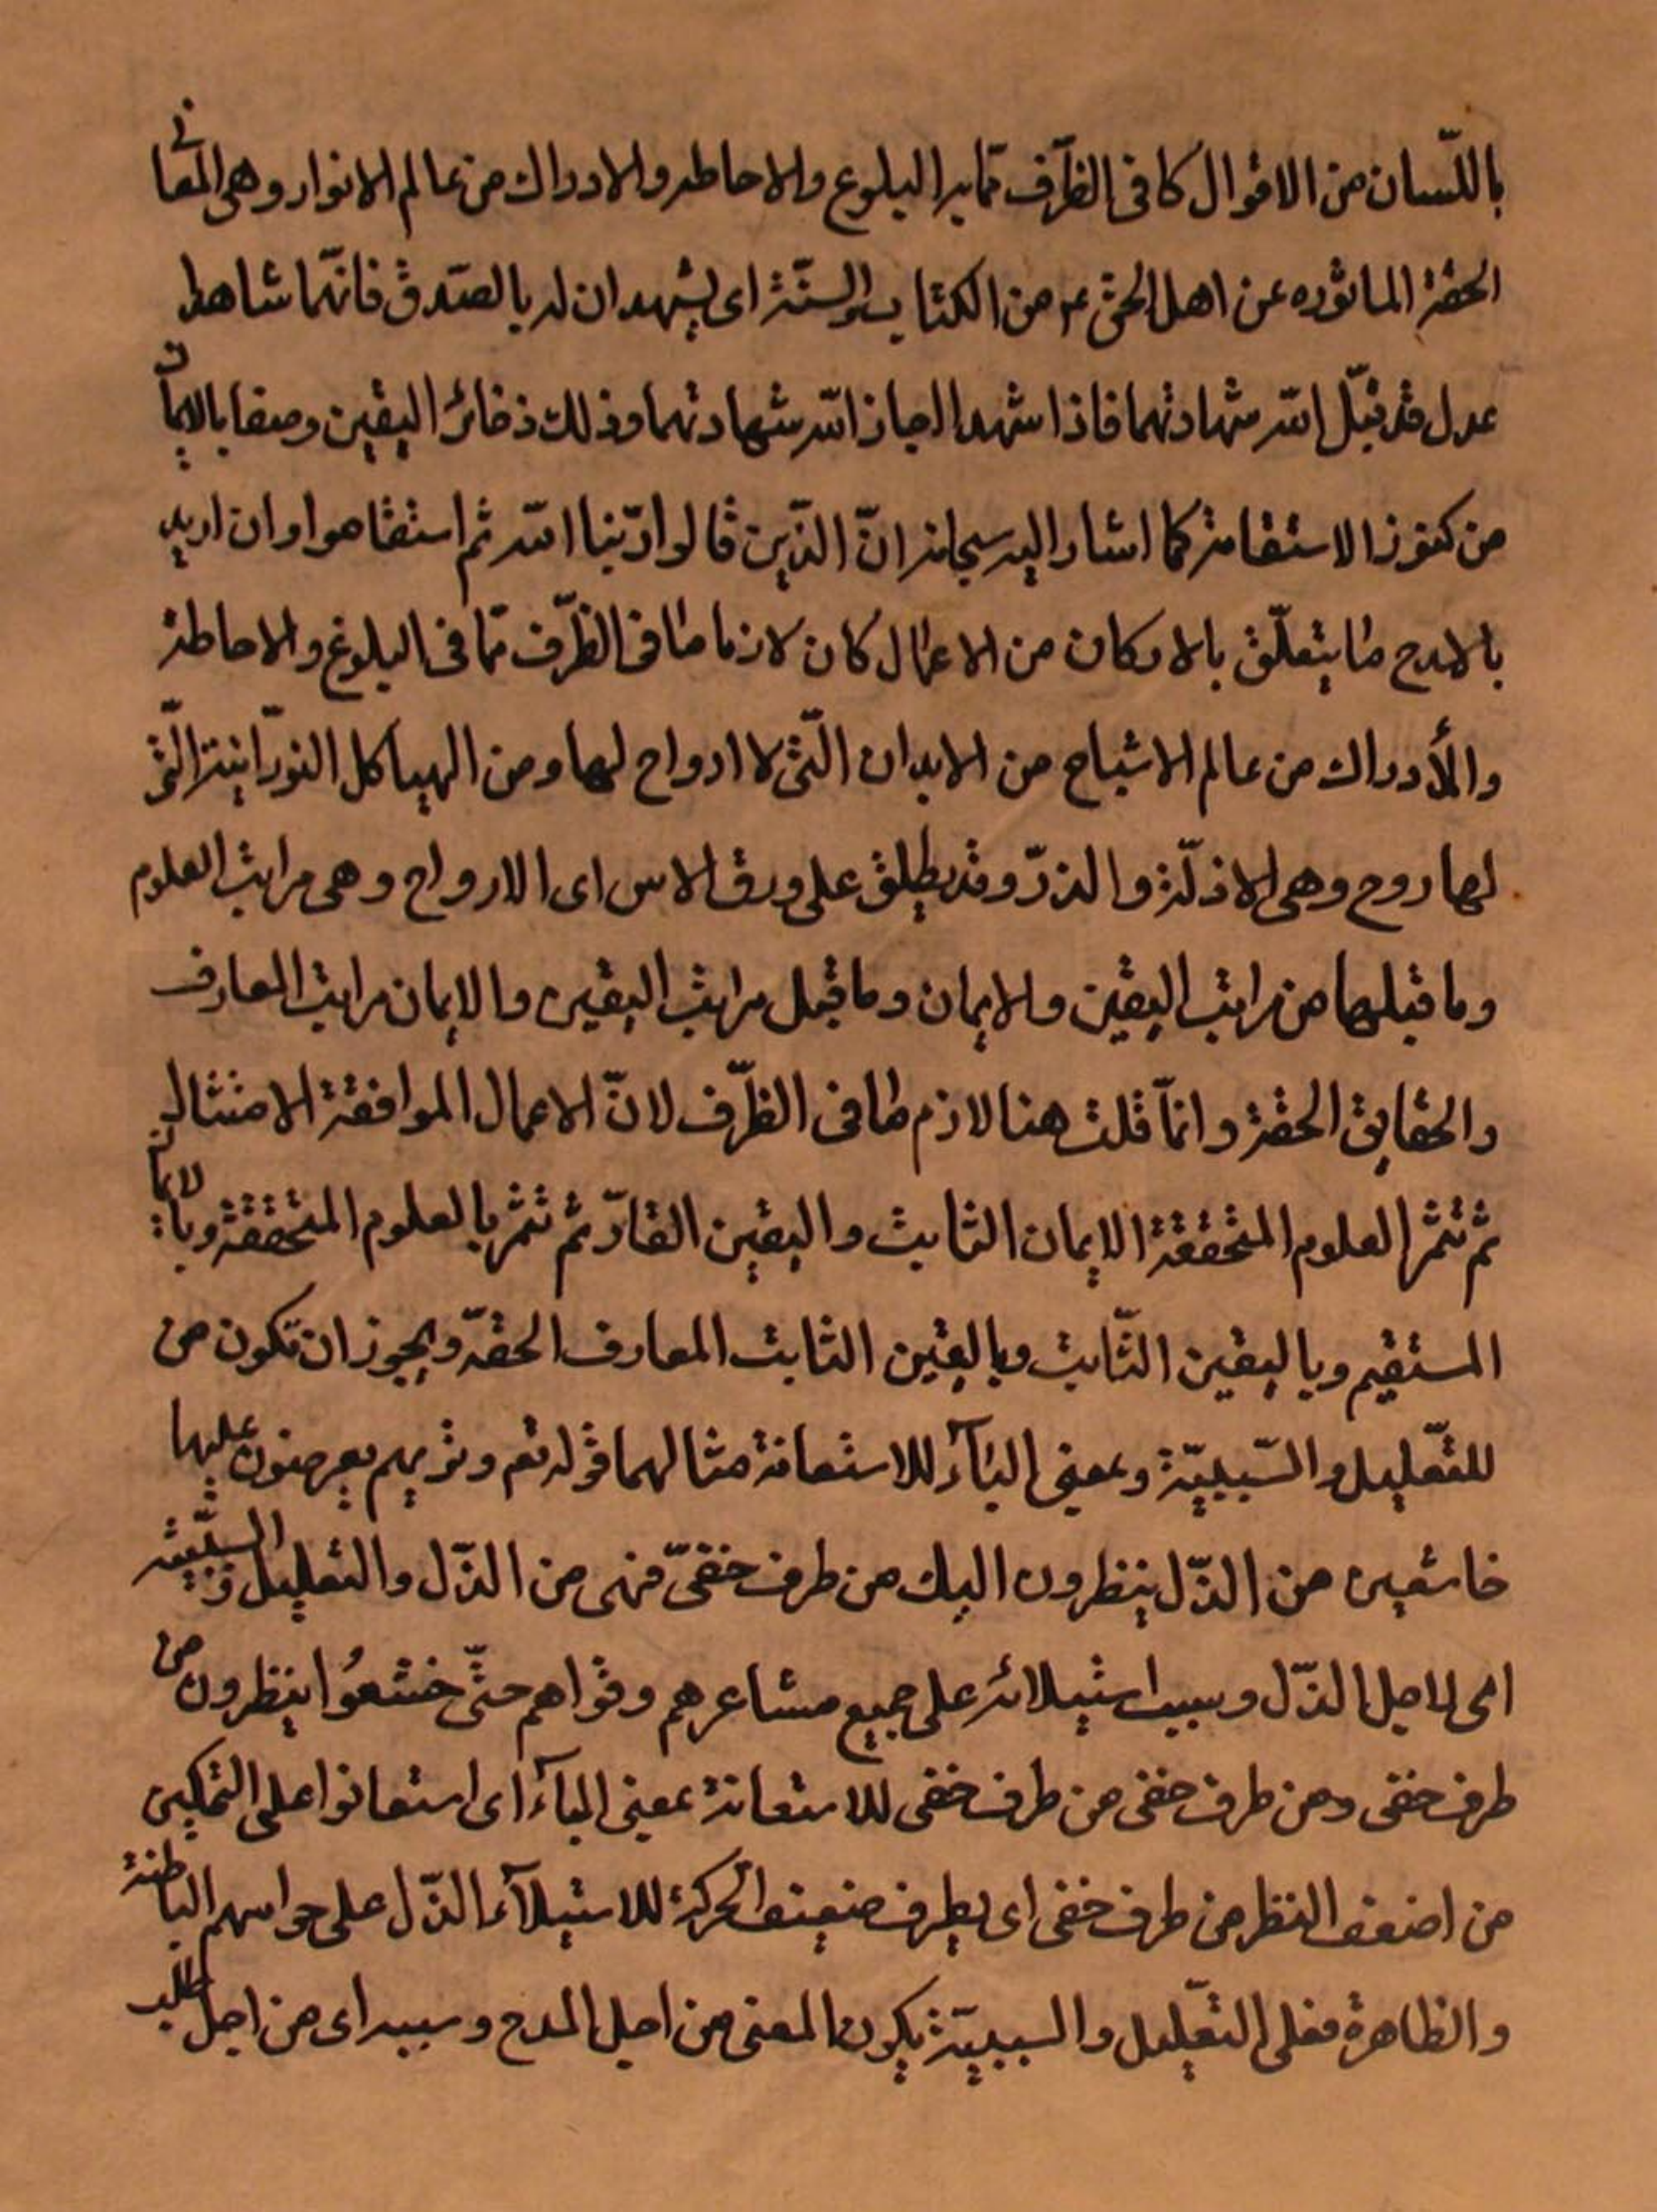 باللّسان من الاقوال كما فى الظرّف ممّا به البلوغ والاحاطه والادراك من عالم الانوار وهى المعانى
الحقة الماثوره عن اهل الحق ع من الكتاب والسنّة اى يشهدان له بالصّدق فانّهما شاهدا
عدل قد قبّل الله شهادتهما فاذا شهدا اجاز الله شهادتهما وذلك ذخائر اليقين وصفايا الايمان
من كنوز الاستقامة كما اشار اليه سبحانه انّ الذّين قالوا ربّنا الله ثم استقاموا وان اريد
بالمدح ما يتعلّق بالاركان من الاعمال كان لازما لما فى الظرّف ممّا فى البلوغ والاحاطة
والأدراك من عالم الاشباح من الابدان الّتى لا ارواح لها ومن الهياكل النورّانية الّتى
لها روح وهى الاذلّة والذرّ وقد يطلق على ورق الاس اى الارواح وهى مراتب العلوم
وما قبلها من مراتب اليقين والايمان وما قبل مراتب اليقين والايمان مراتب المعارف
والحقايق الحقة وانمّا قلت هنا لازم لما فى الظرّف لانّ الاعمال الموافقة الامتثاله
ثم تثمر العلوم المتحققة الايمان الثابت واليقين القارّ ثم تثمر بالعلوم المتحققة وبالايمان
المستقيم وباليقين الثّابت وباليقين الثابت المعارف الحقةّ ويجوز ان تكون من
للتعّليل والسّببيّة وبمعنى البآء للاستعانة مثالهما قوله تعم وتريهم يعرضون عليها
خاشعين من الذّل ينظرون اليك من طرف خفىّ فهى من الذّل والتعليل والسببيّة
اى لاجل الذّل وسبب استيلائه على جميع مشاعرهم وقواهم حتّى خشعُوا ينظرون من
طرف خفى ومن طرف خفى من طرف خفى للاستعانة بمعنى البآء اى استعانوا على التمكين
من اضعف النظر من طرف خفى اى بطرف ضعيف الحركة للاستيلآء الذّل على حواسهم الباطنة
والظاهرة فعلى التعّليل والسببيّة يكون المعنى من اجل المدح وسببه اى من اجل طلب